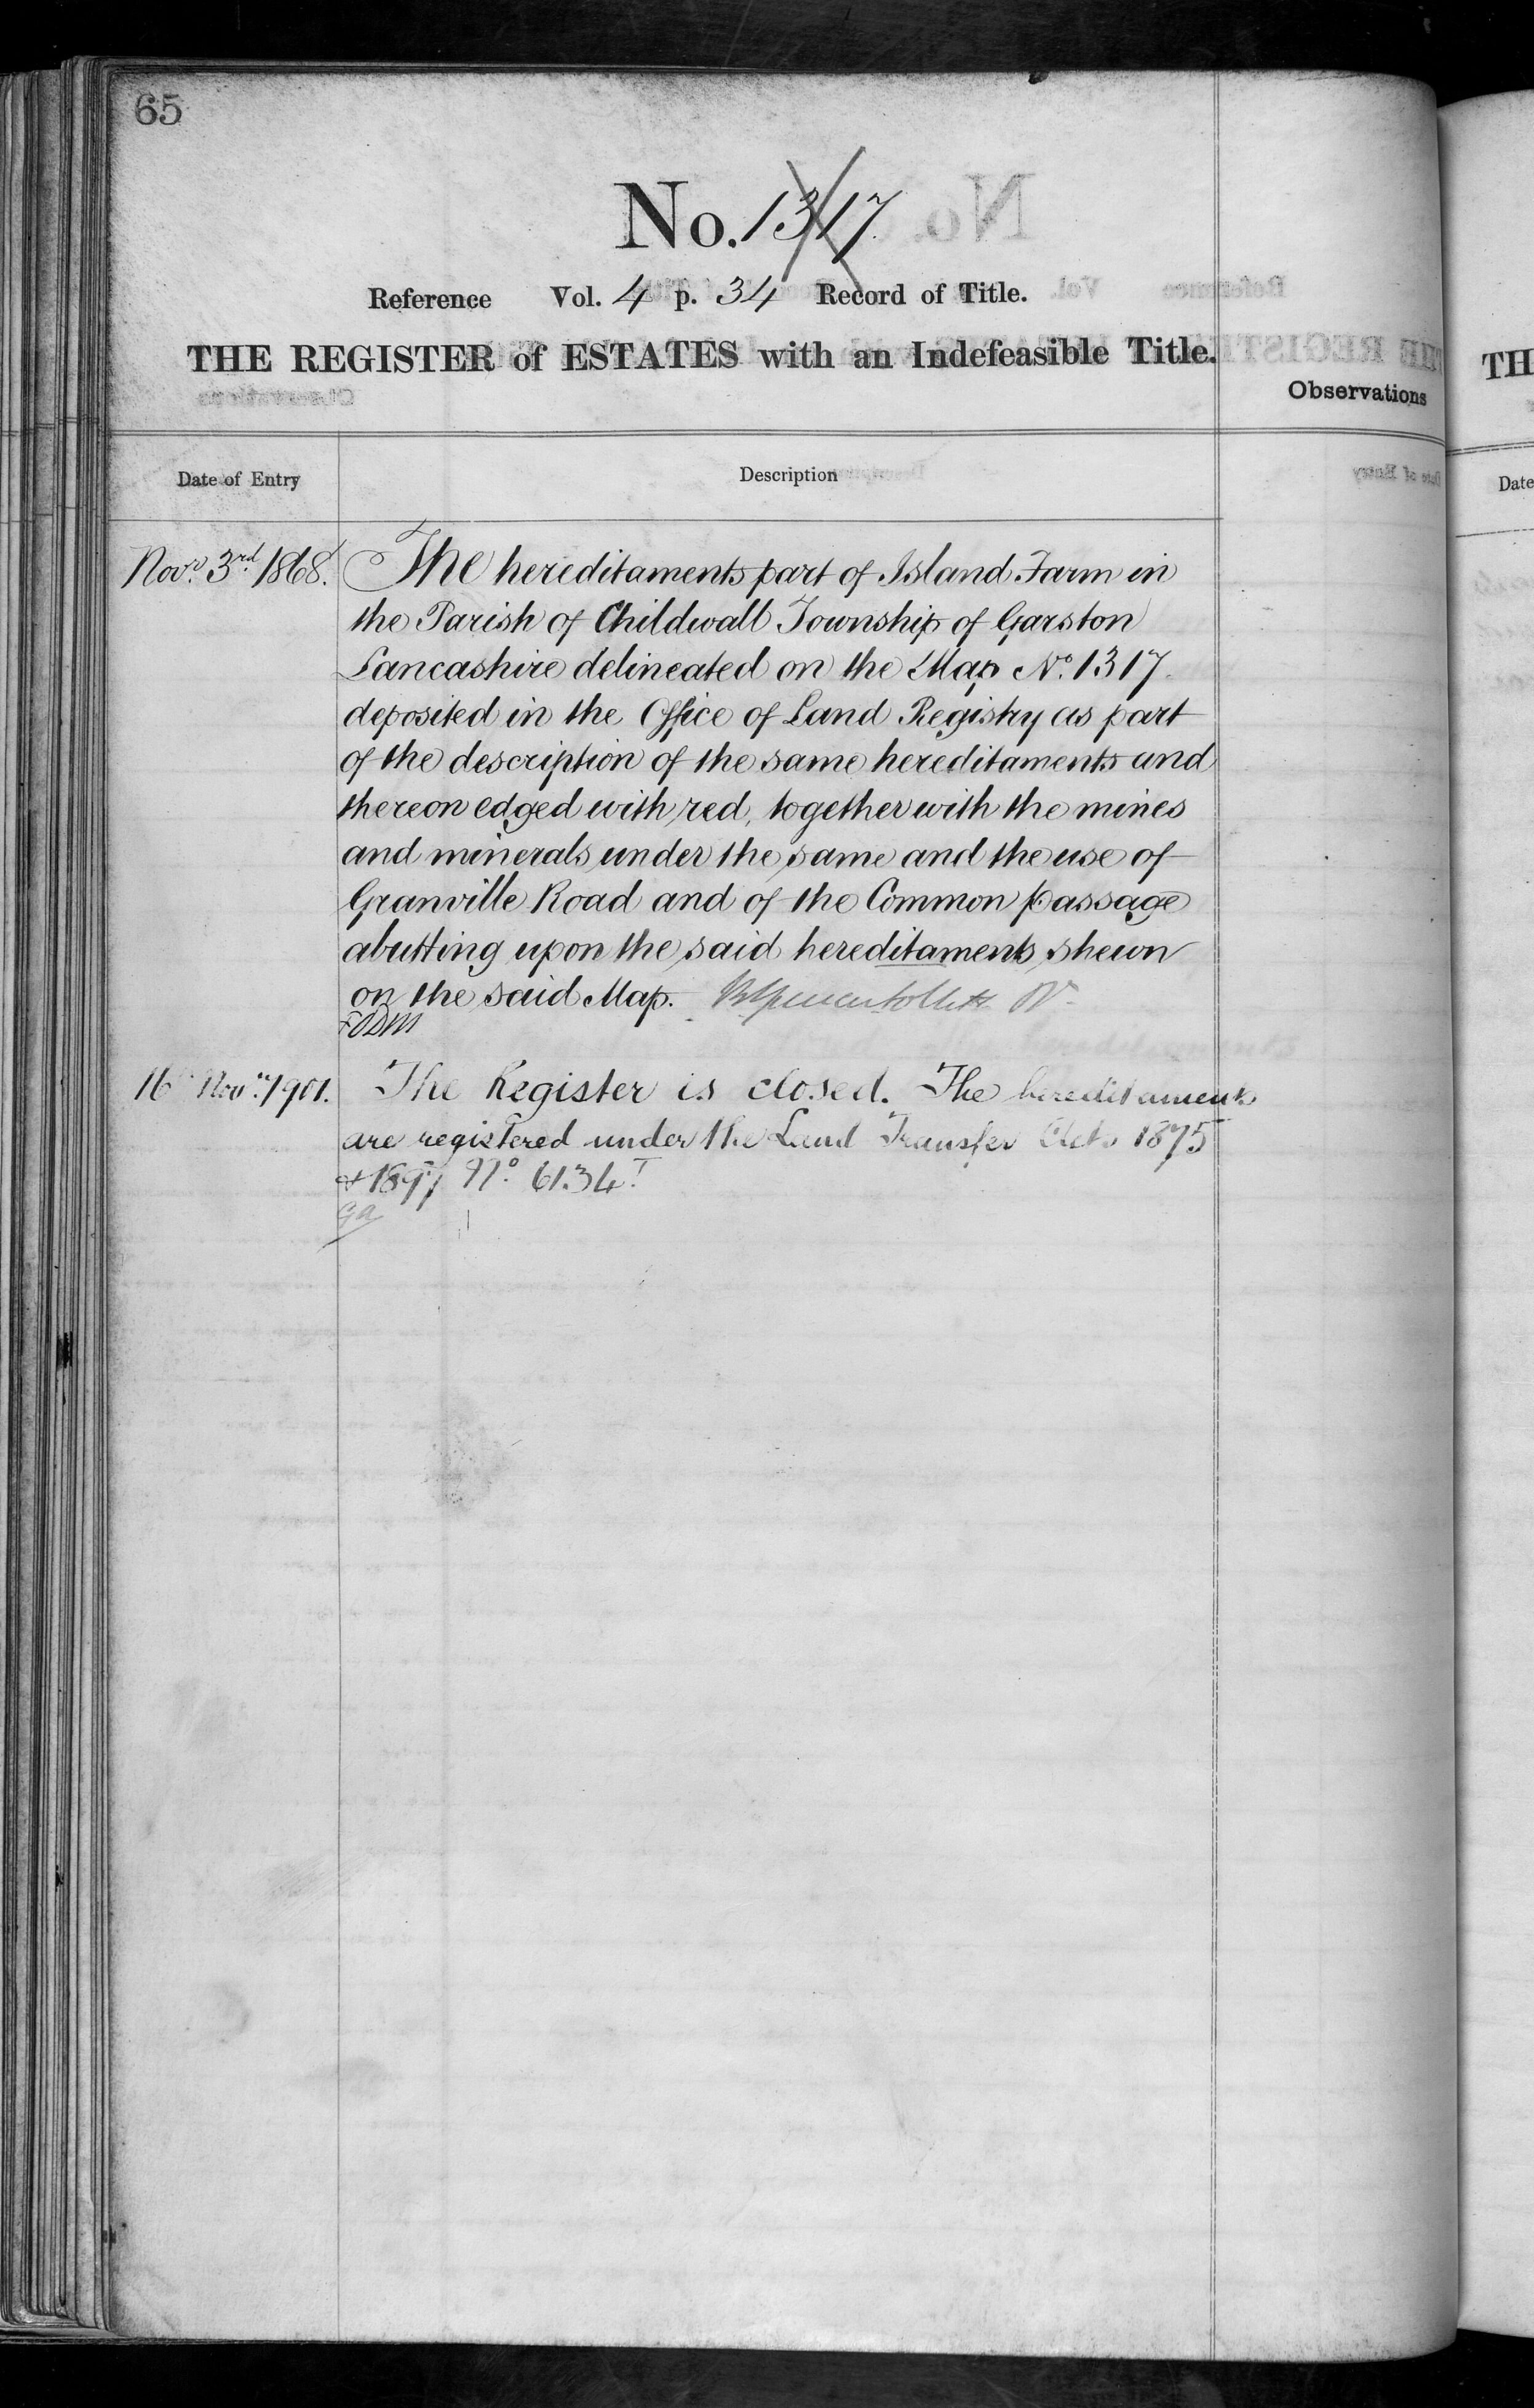 65
No. 1317
Reference Vol. 4 p. 34 Record of Title.
THE REGISTER of ESTATES with an Indefeasible Title.
Observations
Date of Entry
Description
Novr. 3rd 1868. The hereditaments part of Island Farm in
the Parish of Childwall Township of Garston
Lancashire delineated on the Map No. 1317
deposited in the Office of Land Registry as part
of the description of the same hereditaments and
thereon edged with red, together with the mines
and minerals under the same and the use of
Granville Road and of the Common passage
abutting upon the said hereditaments shewn
on the said Map.
16 Novr. 1901. The Register is closed. The hereditaments
are registered under the Land Transfer Acts 1875
& 1897 No. 6134
TH
Date